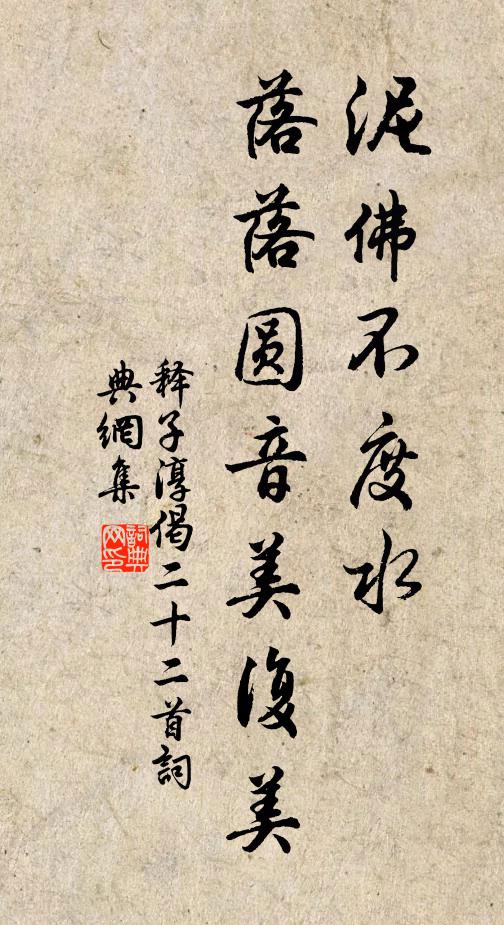 泥佛不度水
落落圆音美復美
释子淳偈二十二首詞
典網集
詞典
网印